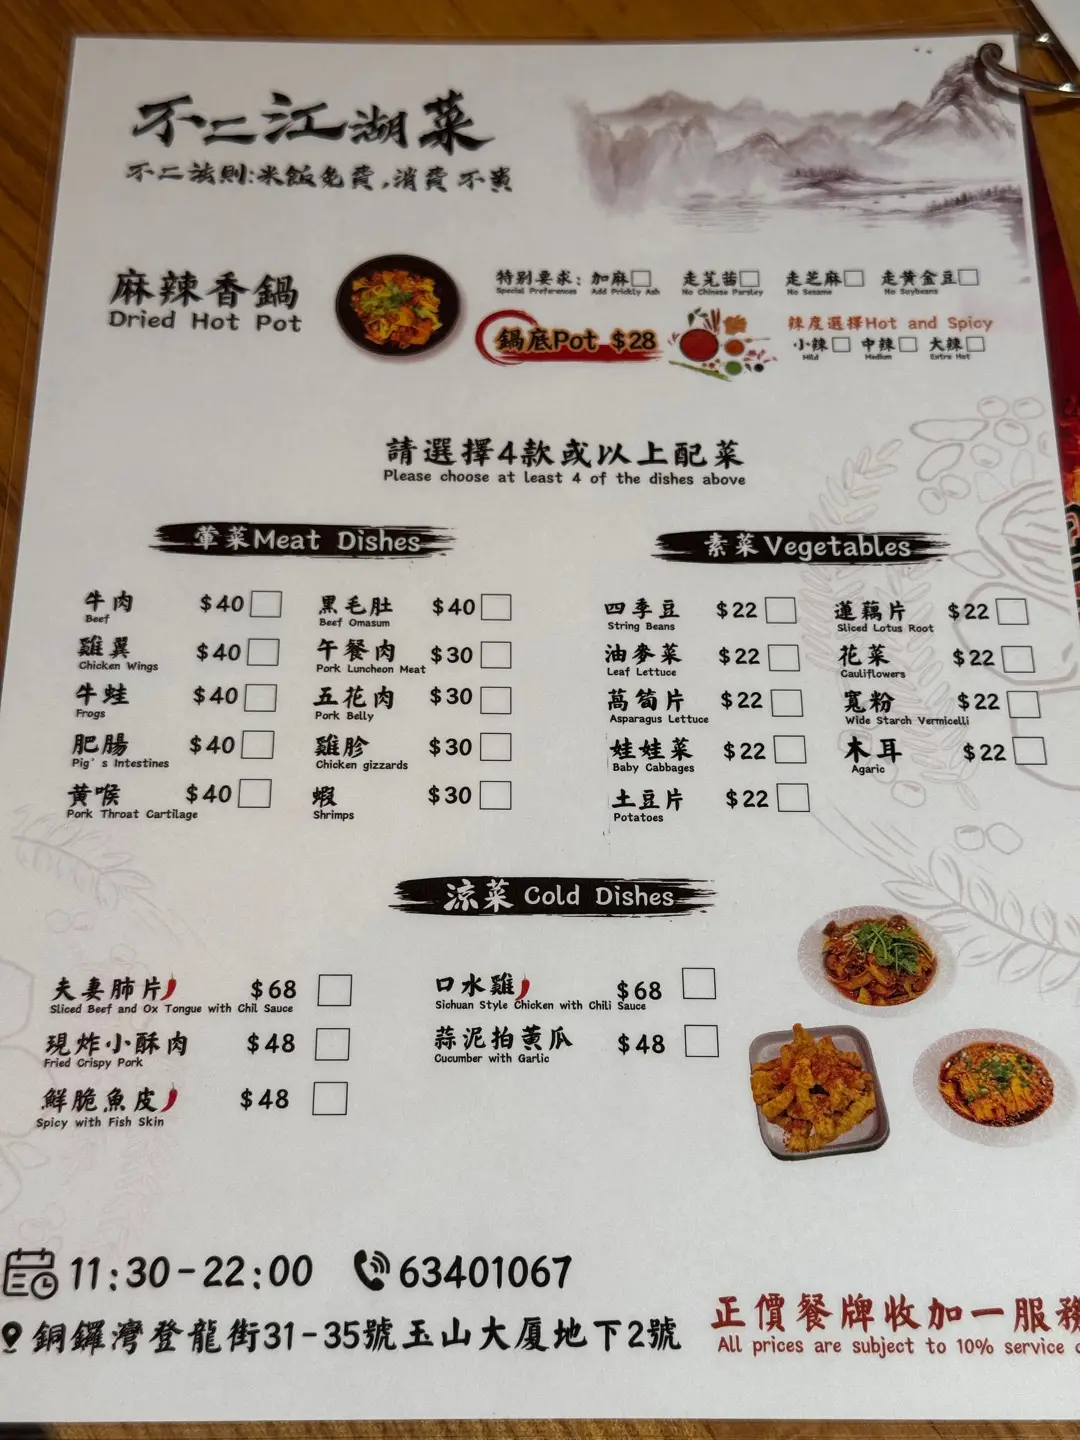 不二江湖菜
不二法則:米飯免費,消費不貴
麻辣香鍋
Dried Hot Pot
特别要求: 加麻 走芫茜 走芝麻 走黄金豆
Special Preferences Add Prickly Ash No Chinese Parsley No Sesame No Soybeans
鍋底Pot $28
辣度選擇Hot and Spicy
小辣 中辣 大辣
Mild Medium Extra Hot
請選擇4款或以上配菜
Please choose at least 4 of the dishes above
葷菜Meat Dishes
牛肉 $40
Beef
雞翼 $40
Chicken Wings
牛蛙 $40
Frogs
肥腸 $40
Pig's Intestines
黄喉 $40
Pork Throat Cartilage
黑毛肚 $40
Beef Omasum
午餐肉 $30
Pork Luncheon Meat
五花肉 $30
Pork Belly
雞胗 $30
Chicken gizzards
蝦 $30
Shrimps
素菜Vegetables
四季豆 $22
String Beans
油麥菜 $22
Leaf Lettuce
萵筍片 $22
Asparagus Lettuce
娃娃菜 $22
Baby Cabbages
土豆片 $22
Potatoes
蓮藕片 $22
Sliced Lotus Root
花菜 $22
Cauliflowers
寬粉 $22
Wide Starch Vermicelli
木耳 $22
Agaric
涼菜 Cold Dishes
夫妻肺片 $68
Sliced Beef and Ox Tongue with Chil Sauce
現炸小酥肉 $48
Fried Crispy Pork
鮮脆魚皮 $48
Spicy with Fish Skin
口水雞 $68
Sichuan Style Chicken with Chili Sauce
蒜泥拍黄瓜 $48
Cucumber with Garlic
11:30-22:00 63401067
銅鑼灣登龍街31-35號玉山大厦地下2號
正價餐牌收加一服務
All prices are subject to 10% service